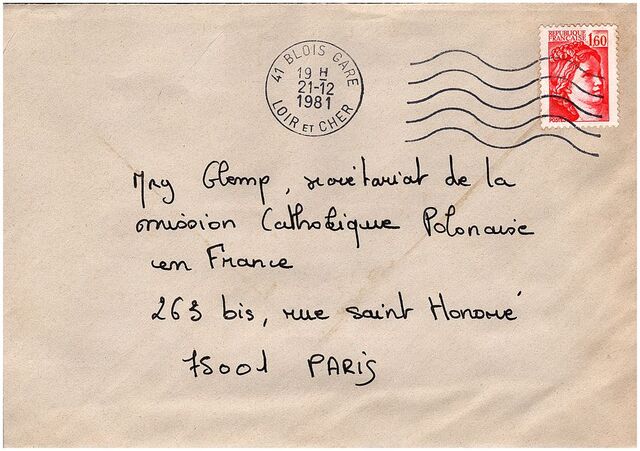 41 BLOIS GARE
19 H
21-12
1981
LOIR ET CHER
REPUBLIQUE
FRANCAISE
1,60
POSTES
Mgr Glemp, secrétariat de la
mission Catholique Polonaise
en France
263 bis, rue saint Honoré
75001 PARIS